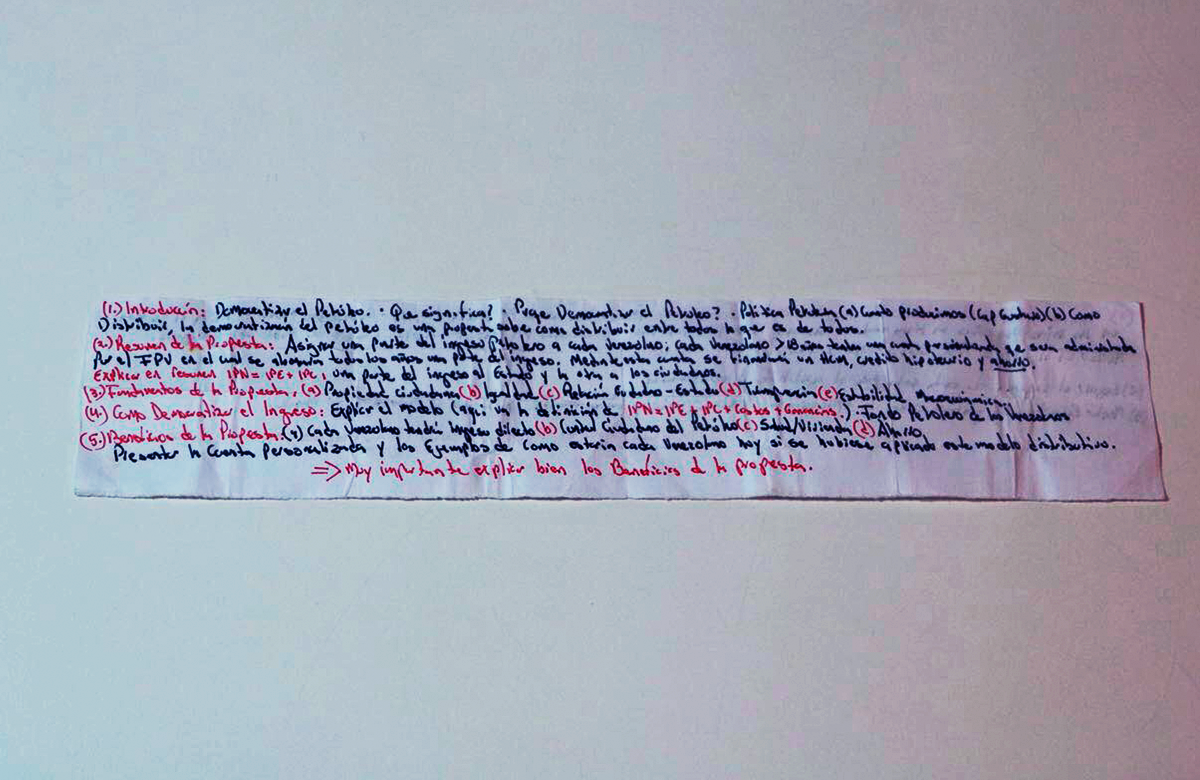 (1.) Introducción: Democratizar el Petróleo. · Que significa? · Porqe Democratizar el Petroleo? · Política Petrolera (a) Cuanto producimos (b) Como
Distribuir, la democratización del petróleo es una propuesta sobre como distribuir entre todos lo que es de todos.
(2.) Resumen de la Propuesta: Asignar una parte del ingreso petrolero a cada Venezolano; cada Venezolano > 18 años tendra una cuenta que sera administrada
Por el FPV en el cual se abonaría todos los años una parte del ingreso. Mediante esta cuenta se financiaría un HCM, credito hipotecario y ahorro.
Explicar en resumen IPN = IPE + IPC, una parte del ingreso al Estado y la otra a los ciudadanos.
(3.) Fundamentos de la Propuesta. (a) Propiedad ciudadana (b) Igualdad (c) Relación Ciudadano - Estado (d) Transparencia (e) Estabilidad Macroeconomica
(4.) Como Democratizar el Ingreso: Explicar el modelo (aqui va la definición de IPN = IPE + IPC + Costos + Ganancias.) · Fondo Petrolero de los Venezolanos
(5.) Beneficios de la Propuesta. (a) Cada Venezolano tendrá Ingreso directo (b) Control Ciudadano del Petróleo (c) Salud/Vivienda (d) Ahorro.
Presentar la Cuenta personalizada y los Ejemplos de Como estaría cada Venezolano hoy si se hubiese aplicado este modelo distributivo.
⇒ Muy importante explicar bien los Beneficios de la propuesta.